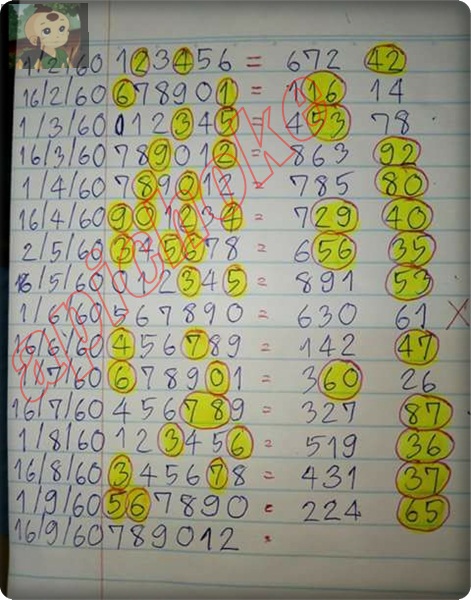 1/2/60 123456 = 672 42
16/2/60 678901 = 116 14
1/3/60 012345 = 453 78
16/3/60 789012 = 863 92
1/4/60 789012 = 785 80
16/4/60 901234 = 729 40
2/5/60 345678 = 656 35
16/5/60 012345 = 891 53
1/6/60 567890 = 630 61 X
16/6/60 456789 = 142 47
/7/60 678901 = 360 26
16/7/60 456789 = 327 87
1/8/60 123456 = 519 36
16/8/60 345678 = 431 37
1/9/60 567890 = 224 65
16/9/60 789012 =